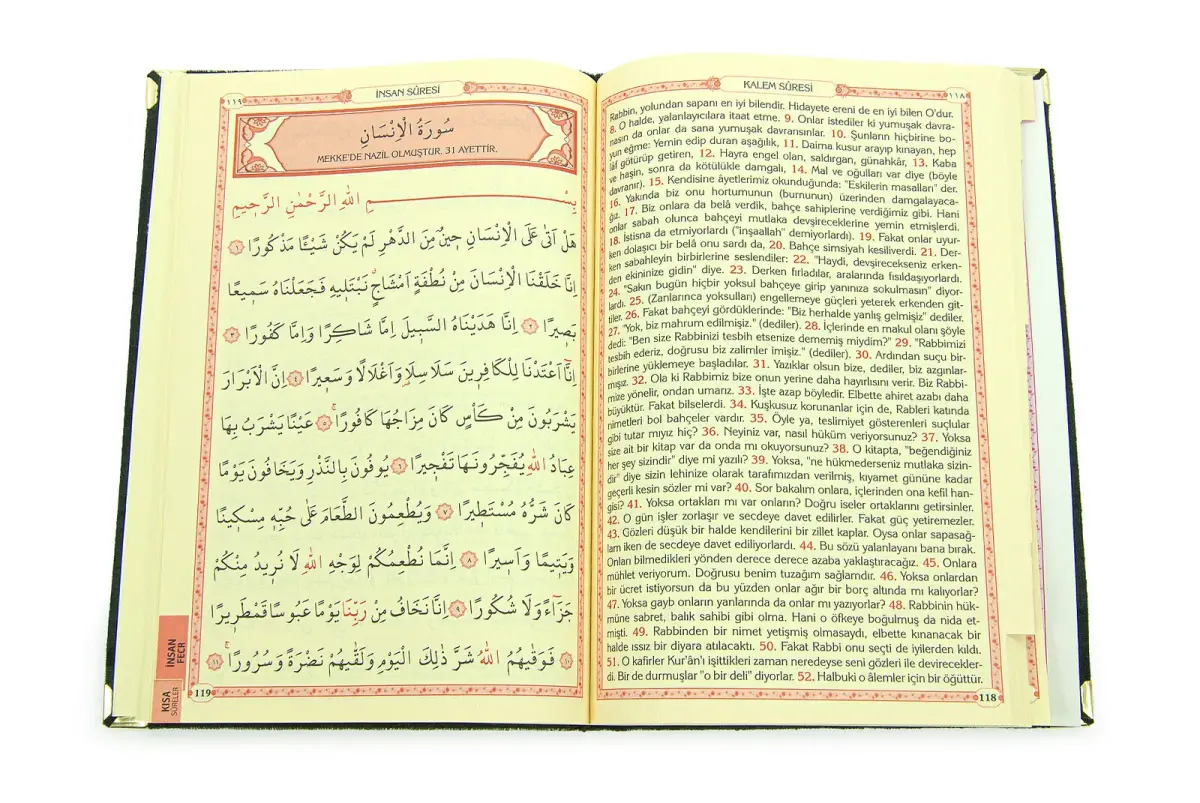 KALEM SÛRESİ
١١٨
Rabbin, yolundan sapanı en iyi bilendir. Hidayete ereni de en iyi bilen O'dur.
8. O halde, yalanlayıcılara itaat etme. 9. Onlar istediler ki yumuşak davra-
nasın da onlar da sana yumuşak davransınlar. 10. Şunların hiçbirine bo-
yun eğme: Yemin edip duran aşağılık, 11. Daima kusur arayıp kınayan, hep
lâf götürüp getiren, 12. Hayra engel olan, saldırgan, günahkâr, 13. Kaba
ve haşin, sonra da kötülükle damgalı, 14. Mal ve oğulları var diye (böyle
davranır). 15. Kendisine âyetlerimiz okunduğunda: "Eskilerin masalları" der.
16. Yakında biz onu hortumunun (burnunun) üzerinden damgalayaca-
ğız. 17. Biz onlara da belâ verdik, bahçe sahiplerine verdiğimiz gibi. Hani
onlar sabah olunca bahçeyi mutlaka devşireceklerine yemin etmişlerdi.
18. İstisna da etmiyorlardı ("inşaallah" demiyorlardı). 19. Fakat onlar uyur-
ken dolaşıcı bir belâ onu sardı da, 20. Bahçe simsiyah kesiliverdi. 21. Der-
ken sabahleyin birbirlerine seslendiler: 22. "Haydi, devşirecekseniz erken-
den ekininize gidin" diye. 23. Derken fırladılar, aralarında fısıldaşıyorlardı.
24. "Sakın bugün hiçbir yoksul bahçeye girip yanınıza sokulmasın" diyor-
lardı. 25. (Zanlarınca yoksulları) engellemeye güçleri yeterek erkenden git-
tiler. 26. Fakat bahçeyi gördüklerinde: "Biz herhalde yanlış gelmişiz" dediler.
27. "Yok, biz mahrum edilmişiz." (dediler). 28. İçlerinde en makul olanı şöyle
dedi: "Ben size Rabbinizi tesbih etsenize dememiş miydim?" 29. "Rabbimizi
tesbih ederiz, doğrusu biz zalimler imişiz." (dediler). 30. Ardından suçu bir-
birlerine yüklemeye başladılar. 31. Yazıklar olsun bize, dediler, biz azgınlar-
mışız. 32. Ola ki Rabbimiz bize onun yerine daha hayırlısını verir. Biz Rabbi-
mize yönelir, ondan umarız. 33. İşte azap böyledir. Elbette ahiret azabı daha
büyüktür. Fakat bilselerdi. 34. Kuşkusuz korunanlar için de, Rableri katında
nimetleri bol bahçeler vardır. 35. Öyle ya, teslimiyet gösterenleri suçlular
gibi tutar mıyız hiç? 36. Neyiniz var, nasıl hüküm veriyorsunuz? 37. Yoksa
size ait bir kitap var da onda mı okuyorsunuz? 38. O kitapta, "beğendiğiniz
her şey sizindir" diye mi yazılı? 39. Yoksa, "ne hükmederseniz mutlaka sizin-
dir" diye sizin lehinize olarak tarafımızdan verilmiş, kıyamet gününe kadar
geçerli kesin sözler mi var? 40. Sor bakalım onlara, içlerinden ona kefil han-
gisi? 41. Yoksa ortakları mı var onların? Doğru iseler ortaklarını getirsinler.
42. O gün işler zorlaşır ve secdeye davet edilirler. Fakat güç yetiremezler.
43. Gözleri düşük bir halde kendilerini bir zillet kaplar. Oysa onlar sapasağ-
lam iken de secdeye davet ediliyorlardı. 44. Bu sözü yalanlayanı bana bırak.
Onları bilmedikleri yönden derece derece azaba yaklaştıracağız. 45. Onlara
mühlet veriyorum. Doğrusu benim tuzağım sağlamdır. 46. Yoksa onlardan
bir ücret istiyorsun da bu yüzden onlar ağır bir borç altında mı kalıyorlar?
47. Yoksa gayb onların yanlarında da onlar mı yazıyorlar? 48. Rabbinin hük-
müne sabret, balık sahibi gibi olma. Hani o öfkeye boğulmuş da nida et-
mişti. 49. Rabbinden bir nimet yetişmiş olmasaydı, elbette kınanacak bir
halde ıssız bir diyara atılacaktı. 50. Fakat Rabbi onu seçti de iyilerden kıldı.
51. O kafirler Kur'ân'ı işittikleri zaman neredeyse seni gözleri ile devirecekler-
di. Bir de durmuşlar "o bir deli" diyorlar. 52. Halbuki o âlemler için bir öğüttür.
118
١١٩
İNSAN SÛRESİ
سُورَةُ الْاِنْسَانِ
MEKKE'DE NAZİL OLMUŞTUR. 31 AYETTİR.
بِسْمِ اللّٰهِ الرَّحْمٰنِ الرَّحٖيمِ
هَلْ اَتٰى عَلَى الْاِنْسَانِ حٖينٌ مِنَ الدَّهْرِ لَمْ يَكُنْ شَيْئًا مَذْكُورًا ﴿١﴾
اِنَّا خَلَقْنَا الْاِنْسَانَ مِنْ نُطْفَةٍ اَمْشَاجٍ نَبْتَلٖيهِ فَجَعَلْنَاهُ سَمٖيعًا
بَصٖيرًا ﴿٢﴾ اِنَّا هَدَيْنَاهُ السَّبٖيلَ اِمَّا شَاكِرًا وَاِمَّا كَفُورًا ﴿٣﴾
اِنَّٓا اَعْتَدْنَا لِلْكَافِرٖينَ سَلَاسِلَا۬ وَاَغْلَالًا وَسَعٖيرًا ﴿٤﴾ اِنَّ الْاَبْرَارَ
يَشْرَبُونَ مِنْ كَاْسٍ كَانَ مِزَاجُهَا كَافُورًا ﴿٥﴾ عَيْنًا يَشْرَبُ بِهَا
عِبَادُ اللّٰهِ يُفَجِّرُونَهَا تَفْجٖيرًا ﴿٦﴾ يُوفُونَ بِالنَّذْرِ وَيَخَافُونَ يَوْمًا
كَانَ شَرُّهُ مُسْتَطٖيرًا ﴿٧﴾ وَيُطْعِمُونَ الطَّعَامَ عَلٰى حُبِّهٖ مِسْكٖينًا
وَيَتٖيمًا وَاَسٖيرًا ﴿٨﴾ اِنَّمَا نُطْعِمُكُمْ لِوَجْهِ اللّٰهِ لَا نُرٖيدُ مِنْكُمْ
جَزَٓاءً وَلَا شُكُورًا ﴿٩﴾ اِنَّا نَخَافُ مِنْ رَبِّنَا يَوْمًا عَبُوسًا قَمْطَرٖيرًا
﴿١٠﴾ فَوَقٰيهُمُ اللّٰهُ شَرَّ ذٰلِكَ الْيَوْمِ وَلَقّٰيهُمْ نَضْرَةً وَسُرُورًا ﴿١١﴾
119
İNSAN
FECR
KISA
SÛRELER